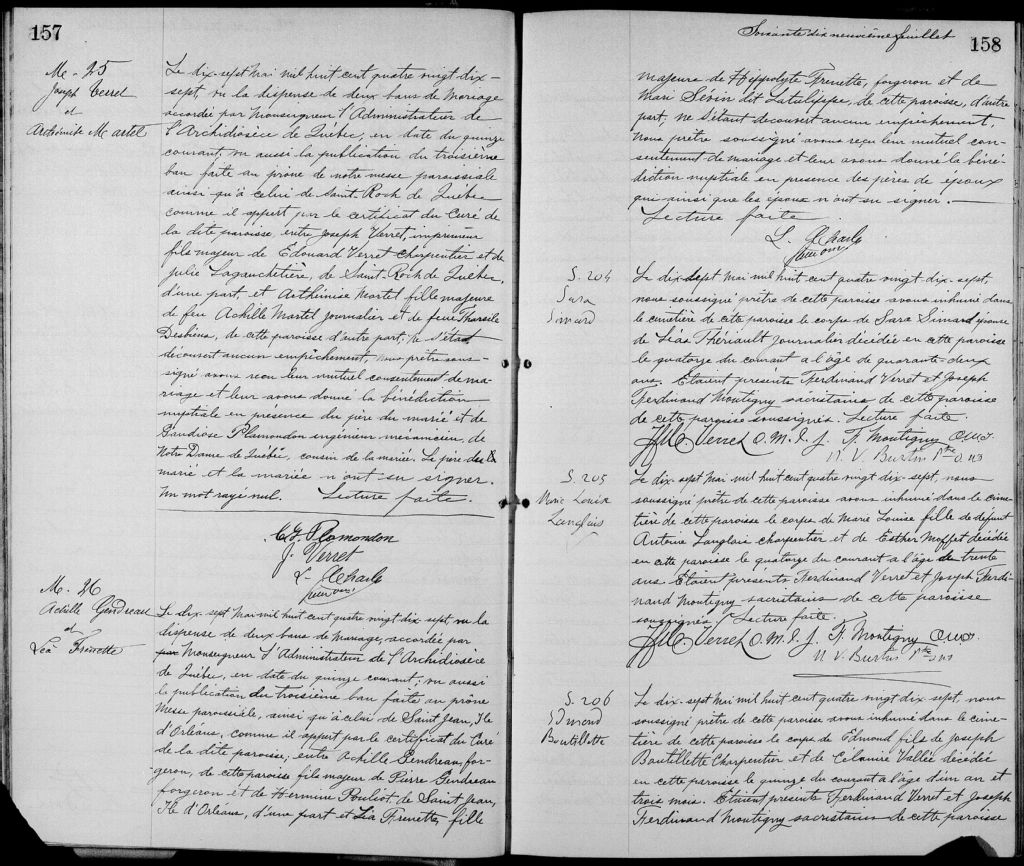 157
M. 25
Joseph Verret
et
Arthémise Martel
Le dix-sept Mai mil huit cent quatre vingt dix-
sept, vu la dispense de deux bans de Mariage
accordée par Monseigneur l'Administrateur de
l'Archidiosèce de Québec, en date du quinze
courant, vu aussi la publication du troisième
ban faite au prône de notre messe paroissiale
ainsi qu'à celui de Saint-Roch de Québec
comme il appert par le certificat du Curé de
la dite paroisse, entre Joseph Verret, imprimeur
fils majeur de Edouard Verret charpentier et de
Julie Laganchetière, de Saint-Roch de Québec,
d'une part, et Arthémise Martel fille majeure
de feu Achille Martel journalier et de feue Tharsile
Desbiens, de cette paroisse d'autre part; ne s'étant
découvert aucun empêchement, nous prêtre sous-
signé avons reçu leur mutuel consentement de ma-
riage et leur avons donné la bénédiction
nuptiale en présence du père du marié et de
Gaudiose Plamondon ingénieur mécanicien, de
Notre Dame de Québec, cousin de la mariée. Le père du
marié et la mariée n'ont su signer.
Un mot rayé nul. Lecture faite.
G. Plamondon
J. Verret
M. 26
Achille Gendreau
et
Léa Frenette
Le dix-sept Mai mil huit cent quatre vingt dix sept vu la
dispense de deux bans de Mariage, accordée par
par Monseigneur l'Administrateur de l'Archidiosèce
de Québec, en date du quinze courant; vu aussi
la publication du troisième ban faite au prône
Messe paroissiale, ainsi qu'à celui de Saint Jean, Ile
d'Orléans, comme il appert par le certificat du Curé
de la dite paroisse; entre Achille Gendreau, for-
geron, de cette paroisse fils majeur de Pierre Gendreau
forgeron et de Hermine Pouliot, de Saint Jean,
Ile d'Orléans, d'une part et Léa Frenette, fille
Soixante dix neuvième feuillet
158
majeure de Hippolyte Frenette, forgeron et de
Mari Sivin dit Latulippe, de cette paroisse, d'autre
part, ne s'étant découvert aucun empêchement,
nous prêtre soussigné avons reçu leur mutuel con-
sentement de mariage et leur avons donné la béné-
diction nuptiale en presence des pères de époux
qui ainsi que les époux n'ont su signer.
Lecture faite
S. 204
Sara
Simard
Le dix-sept Mai mil huit cent quatre vingt dix-sept,
nous soussigné prêtre de cette paroisse avons inhumé dans
le cimetière de cette paroisse le corps de Sara Simard épouse
de Léas Thériault journalier décédée en cette paroisse
le quatorze du courant a l'âge de quarante-deux
ans. Etaient présents Ferdinand Verret et Joseph
Ferdinand Montigny sacristains de cette paroisse
de cette paroisse soussignés. Lecture faite.
Verret O.M.I. J. F. Montigny
S. 205
Marie Louise
Langlais
Le dix-sept Mai mil huit cent quatre vingt dix-sept, nous
soussigné prêtre de cette paroisse avons inhumé dans le cime-
tière de cette paroisse le corps de Marie Louise fille de défunt
Antoine Langlais charpentier et de Esther Moffet décédée
en cette paroisse le quatorze du courant a l'âge de trente
ans. Etaient presents Ferdinand Verret et Joseph Ferdi-
nand Montigny sacristains de cette paroisse
soussignés. Lecture faite.
Verret O.M.I. J. F. Montigny
S. 206
Edmond
Boutillette
Le dix-sept Mai mil huit cent quatre vingt dix sept, nous
soussigné prêtre de cette paroisse avons inhumé dans le cime-
tière de cette paroisse le corps de Edmond fils de Joseph
Boutillette Charpentier et de Célanire Vallée décédée
en cette paroisse le quinze du courant a l'âge d'un an et
trois mois. Etaient presents Ferdinand Verret et Joseph
Ferdinand Montigny sacristains de cette paroisse